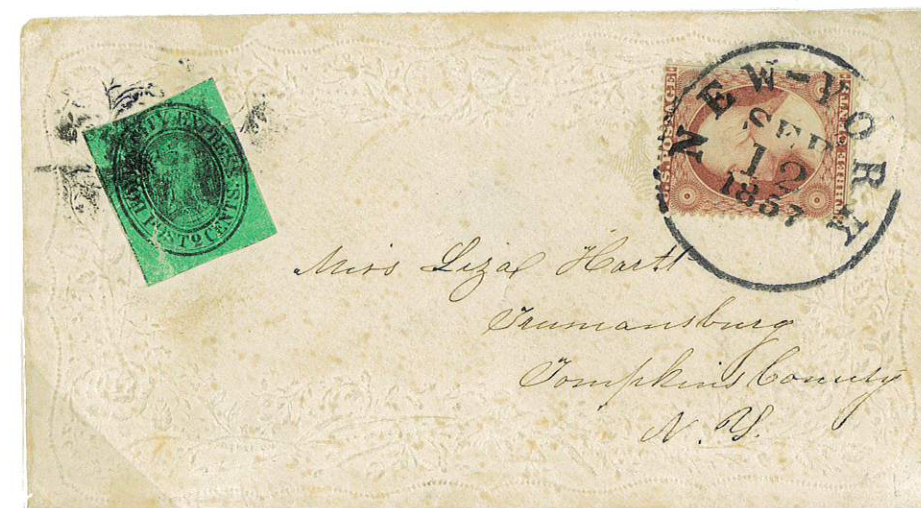 CITY EXPRESS
POST 2 CENTS
U.S. POSTAGE
THREE CENTS
NEW-YORK
SEP
12
1857
Miss Liza Hartt
Trumansburg
Tompkins County
N.Y.